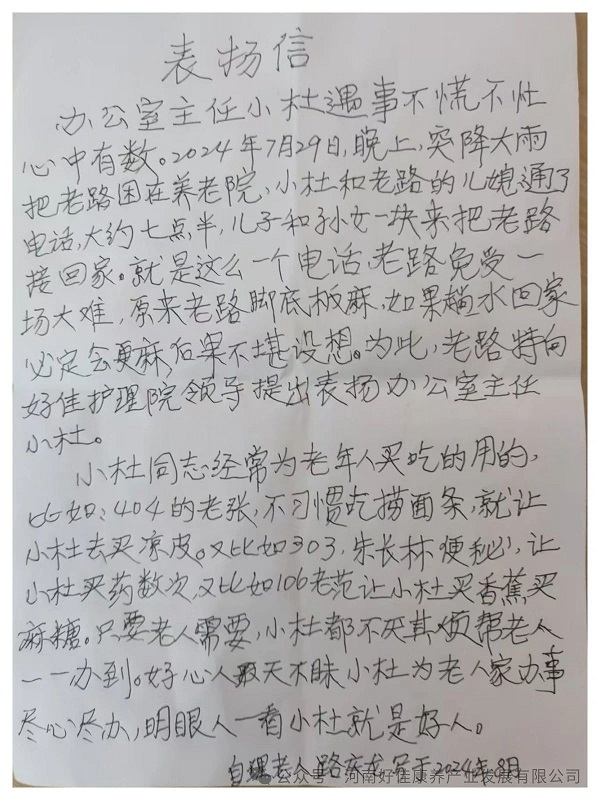 表扬信
办公室主任小杜遇事不慌不忙
心中有数。2024年7月29日,晚上,突降大雨
把老路困在养老院,小杜和老路的儿媳通了
电话,大约七点半,儿子和孙女一块来把老路
接回家。就是这么一个电话,老路免受一
场大难,原来老路脚底板麻,如果趟水回家
必定会更麻,后果不堪设想。为此,老路特向
好佳护理院领导提出表扬办公室主任
小杜。
小杜同志经常为老年人买吃的用的,
比如:404的老张,不习惯吃捞面条,就让
小杜去买凉皮。又比如303,朱长林便秘,让
小杜买药数次,又比如106老范让小杜买香蕉买
麻糖。只要老人需要,小杜都不厌其烦帮老人
一一办到。好心人 天不昧小杜为老人家办事
尽心尽办,明眼人一看小杜就是好人。
自理老人路庆 写于2024年8月
公众号·河南好佳康养产业发展有限公司